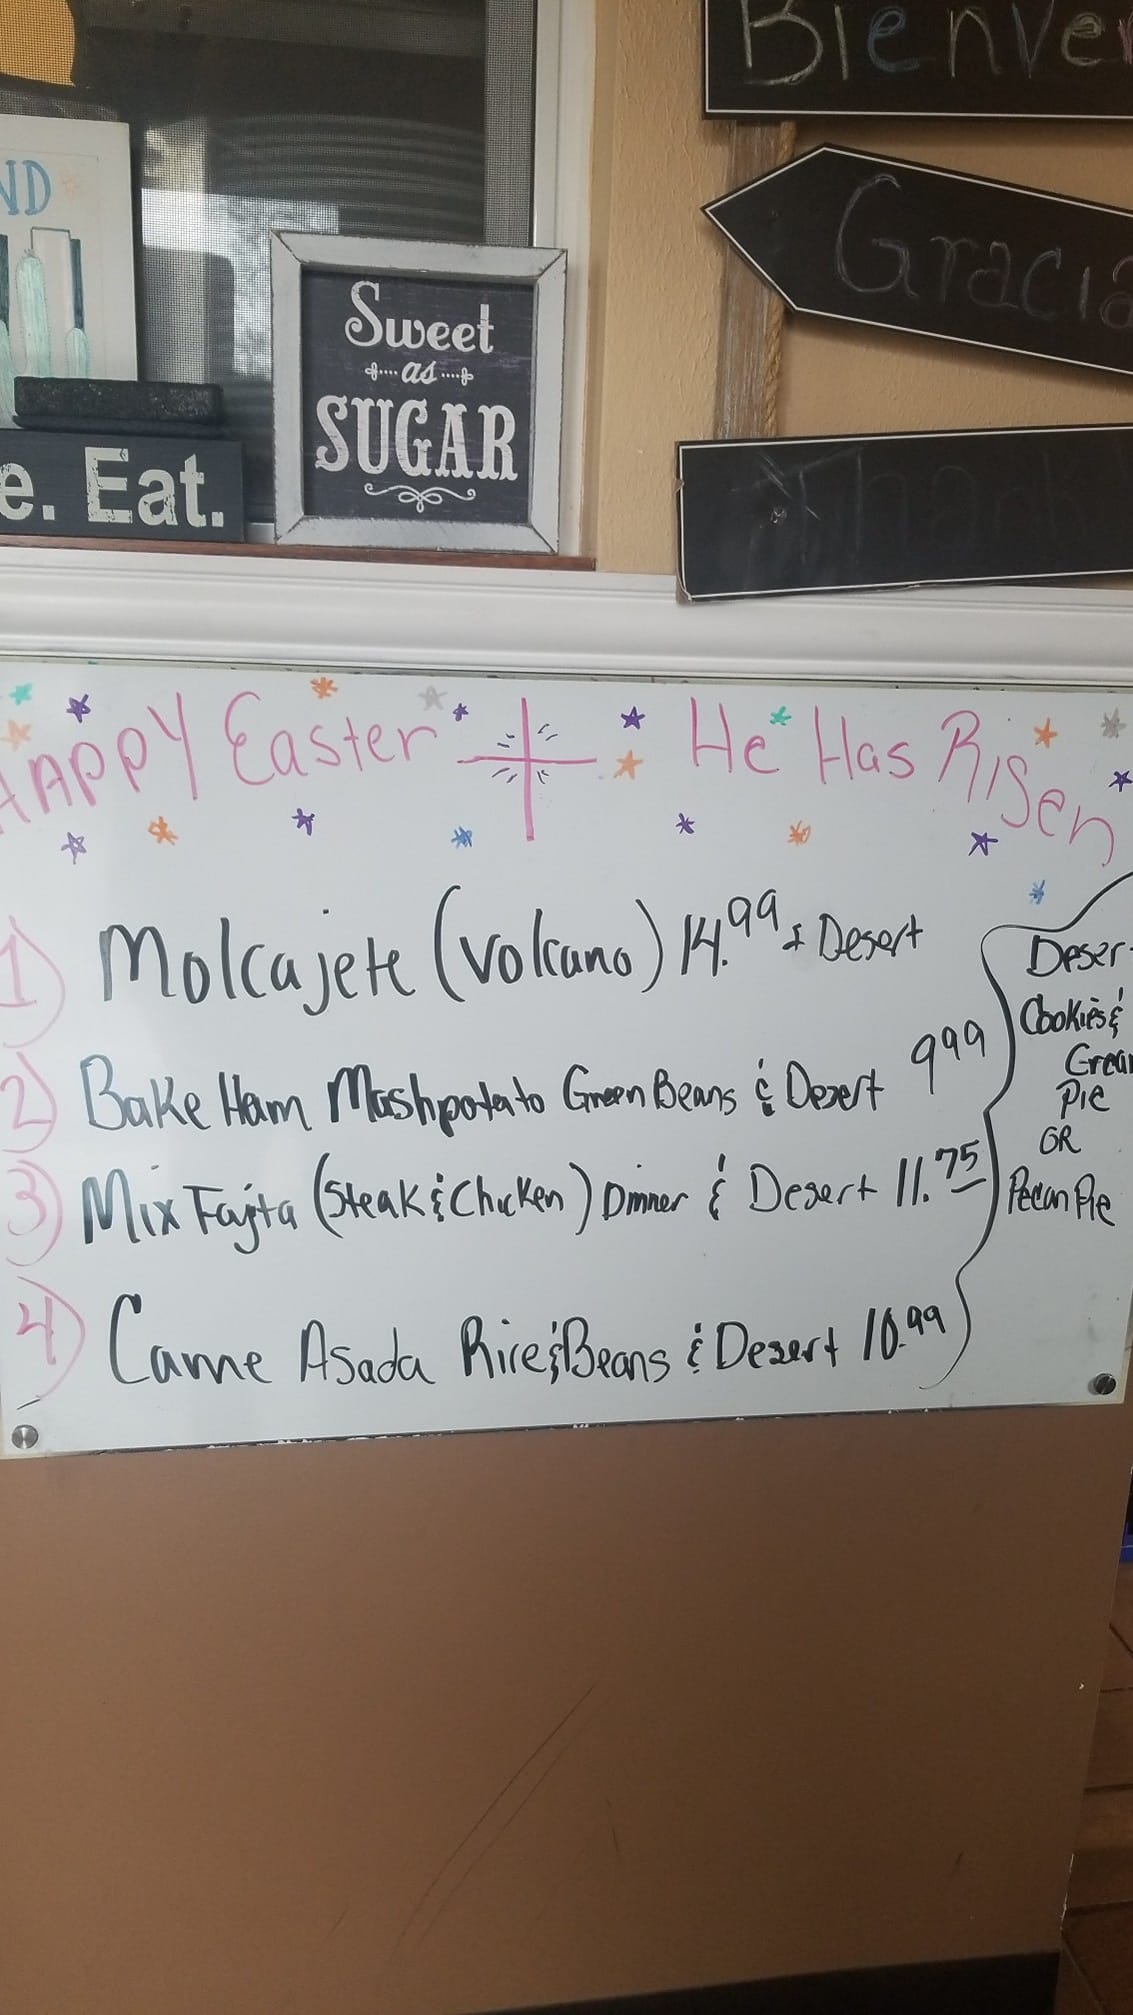 Bienve
Gracia
Thank
ND
Sweet
as
SUGAR
e. Eat.
HAPPY Easter He Has Risen
1) Molcajete (Volcano) 14.99 & Desert
2) Bake Ham Mashpotato Green Beans & Desert 999
3) Mix Fajita (Steak & Chicken) Dinner & Desert 11.75
4) Carne Asada Rice & Beans & Desert 10.99
Deser
Cookies &
Crea
Pie
OR
Pecan Pie